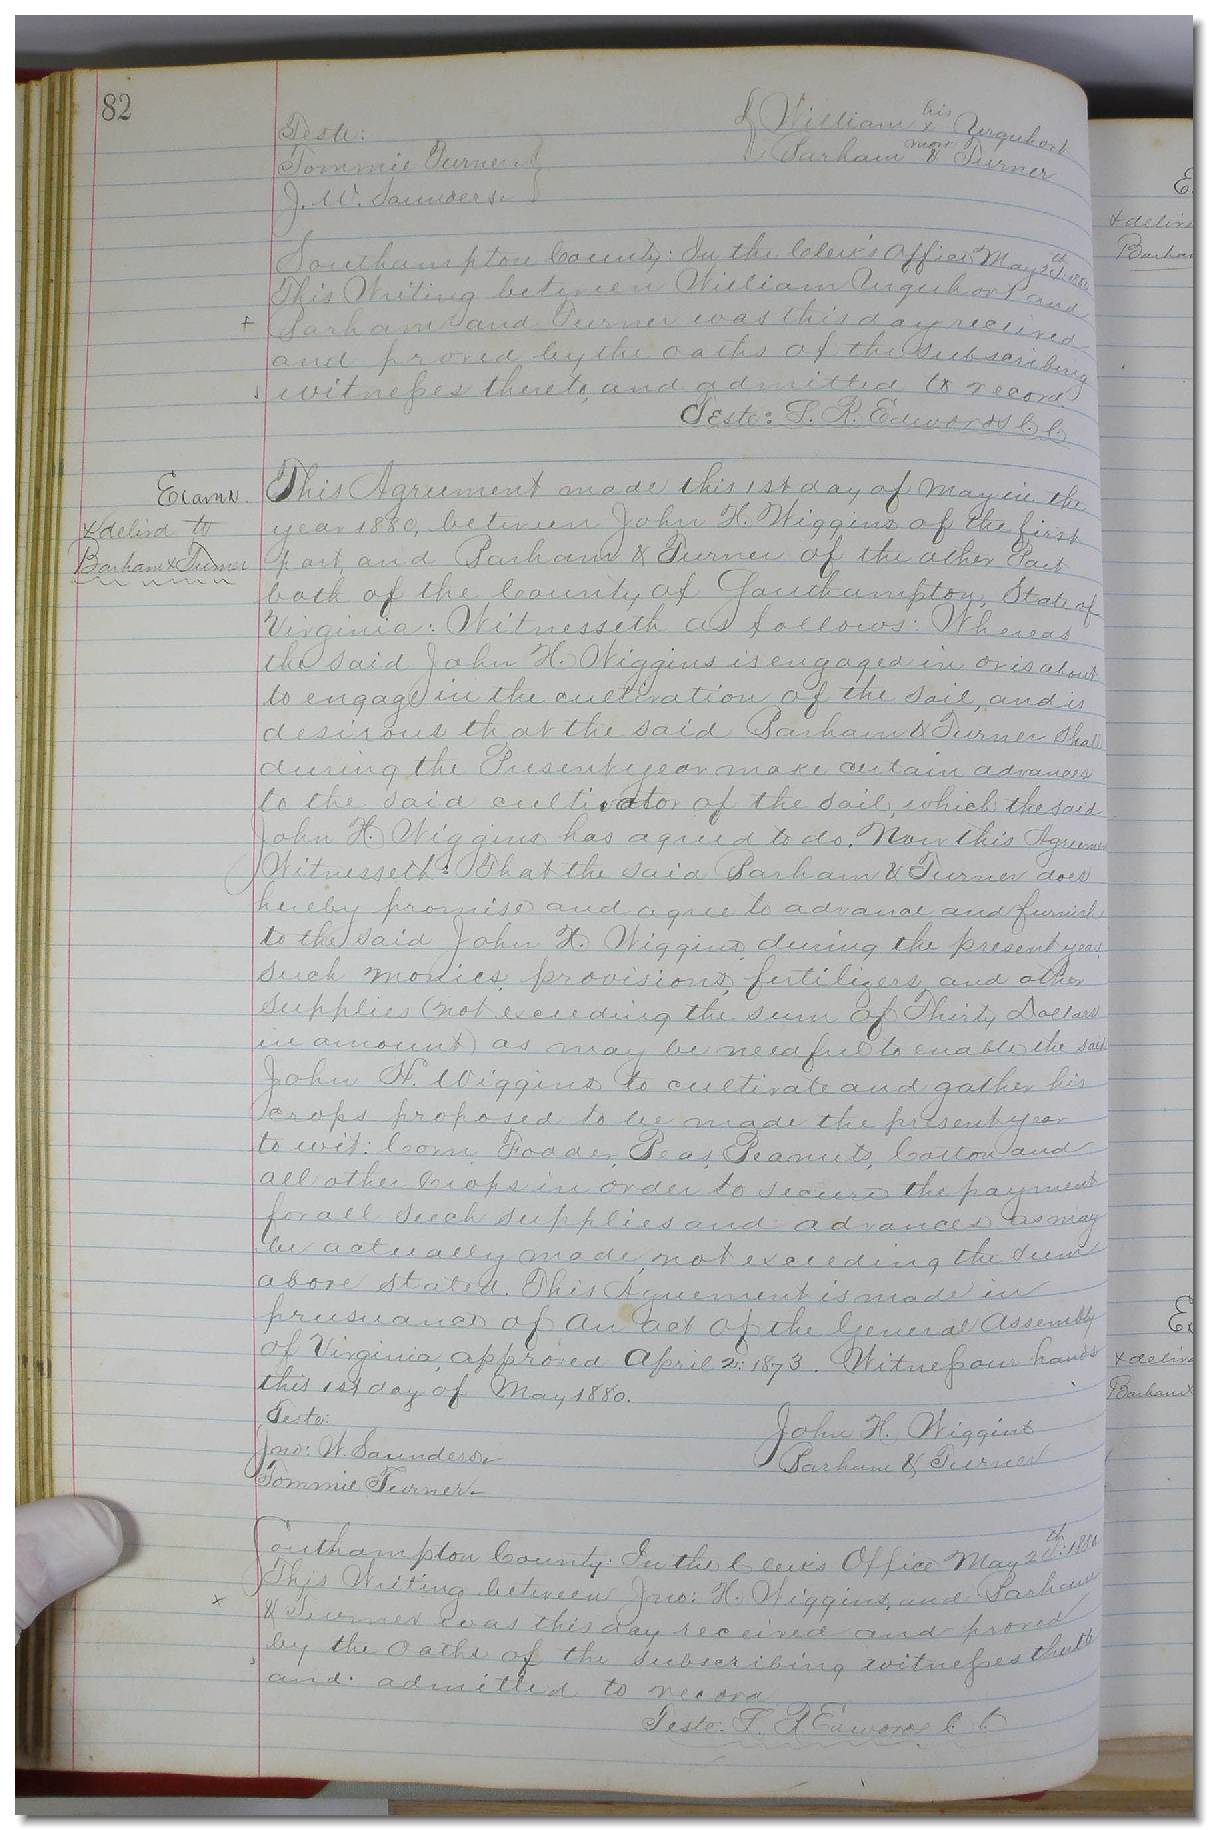 82
Teste:
Tommie Turner
J. W. Saunders.
William his x mark Urquhart
Parham & Turner
Southampton County: In the Clerk's Office May 2th: 1880
This Writing between William Urquhart and
Parham and Turner was this day received
and proved by the oaths of the subscribing
witnesses thereto, and admitted to record.
Teste: L. R. Edwards C. C.
Examd.
& delivd to
Parham & Turner
This Agreement made this 1st day of May in the
year 1880, between John H. Wiggins of the first
part and Parham & Turner of the other Part
both of the County of Southampton, State of
Virginia: Witnesseth as follows: Whereas
the said John H. Wiggins is engaged in or is about
to engage in the cultivation of the soil, and is
desirous that the said Parham & Turner shall
during the Present year make certain advances
to the said cultivator of the soil, which the said
John H. Wiggins has agreed to do. Now this Agreemen
Witnesseth: That the said Parham & Turner does
hereby promise and agree to advance and furnish
to the said John H. Wiggins, during the present year,
such monies, provisions, fertilizers, and other
supplies (not exceeding the sum of Thirty Dollars
in amount) as may be needful to enable the said
John H. Wiggins to cultivate and gather his
crops proposed to be made the present year
to wit: Corn, Fodder, Peas, Peanuts, Cotton and
all other Crops in order to secure the payment
for all such supplies and advances as may
be actually made, not exceeding the sum
above stated. This Agreement is made in
prusuance of An act of the General Assembly
of Virginia, approved April 2: 1873. Witness our hands
this 1st day of May 1880.
Teste:
Jno: W. Saunders
Tommie Turner
John H. Wiggins
Parham & Turner
Southampton County: In the Clerk's Office May 2th: 1880
This Writing between Jno: H. Wiggins, and Parham
& Turner was this day received and proved
by the Oaths of the subscribing witnesses thereto
and admitted to record
Teste: L. R. Edwards C. C.
& deliv
Parham
& deliv
Parham &